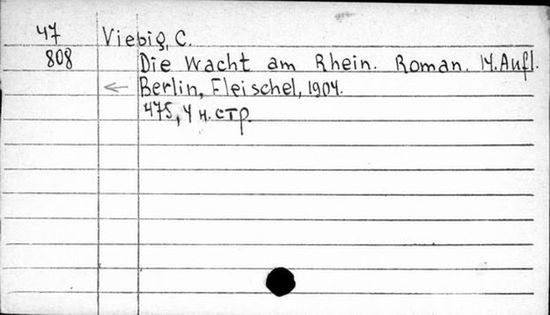 47 Viebig, C.
808 Die Wacht am Rhein. Roman. 14. Aufl.
← Berlin, Fleischel, 1904.
475, 4 н. стр.